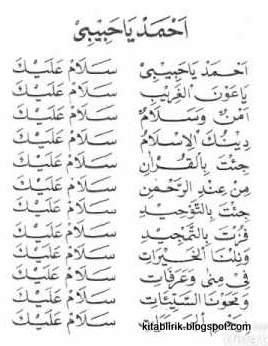 اَحْمَدْ يَا حَبِيْبِيْ
اَحْمَدْ يَا حَبِيْبِيْ سَلَامٌ عَلَيْكَ
يَا عَوْنَ الْغَرِيْبِ سَلَامٌ عَلَيْكَ
اَمْنٌ وَسَلَامٌ سَلَامٌ عَلَيْكَ
دِيْنُكَ الْاِسْلَامُ سَلَامٌ عَلَيْكَ
جِئْتَ بِالْقُرْاٰنِ سَلَامٌ عَلَيْكَ
مِنْ عِنْدِ الرَّحْمٰنِ سَلَامٌ عَلَيْكَ
جِئْتَ بِالتَّوْحِيْدِ سَلَامٌ عَلَيْكَ
فُزْتَ بِالتَّمْجِيْدِ سَلَامٌ عَلَيْكَ
وَنِلْنَا الْخَيْرَاتِ سَلَامٌ عَلَيْكَ
فِيْ مِنٰى وَعَرَفَاتٍ سَلَامٌ عَلَيْكَ
وَمَحَوْتَ السَّيِّئَاتِ سَلَامٌ عَلَيْكَ
سَلَامٌ عَلَيْكَ
kitablirik.blogspot.com